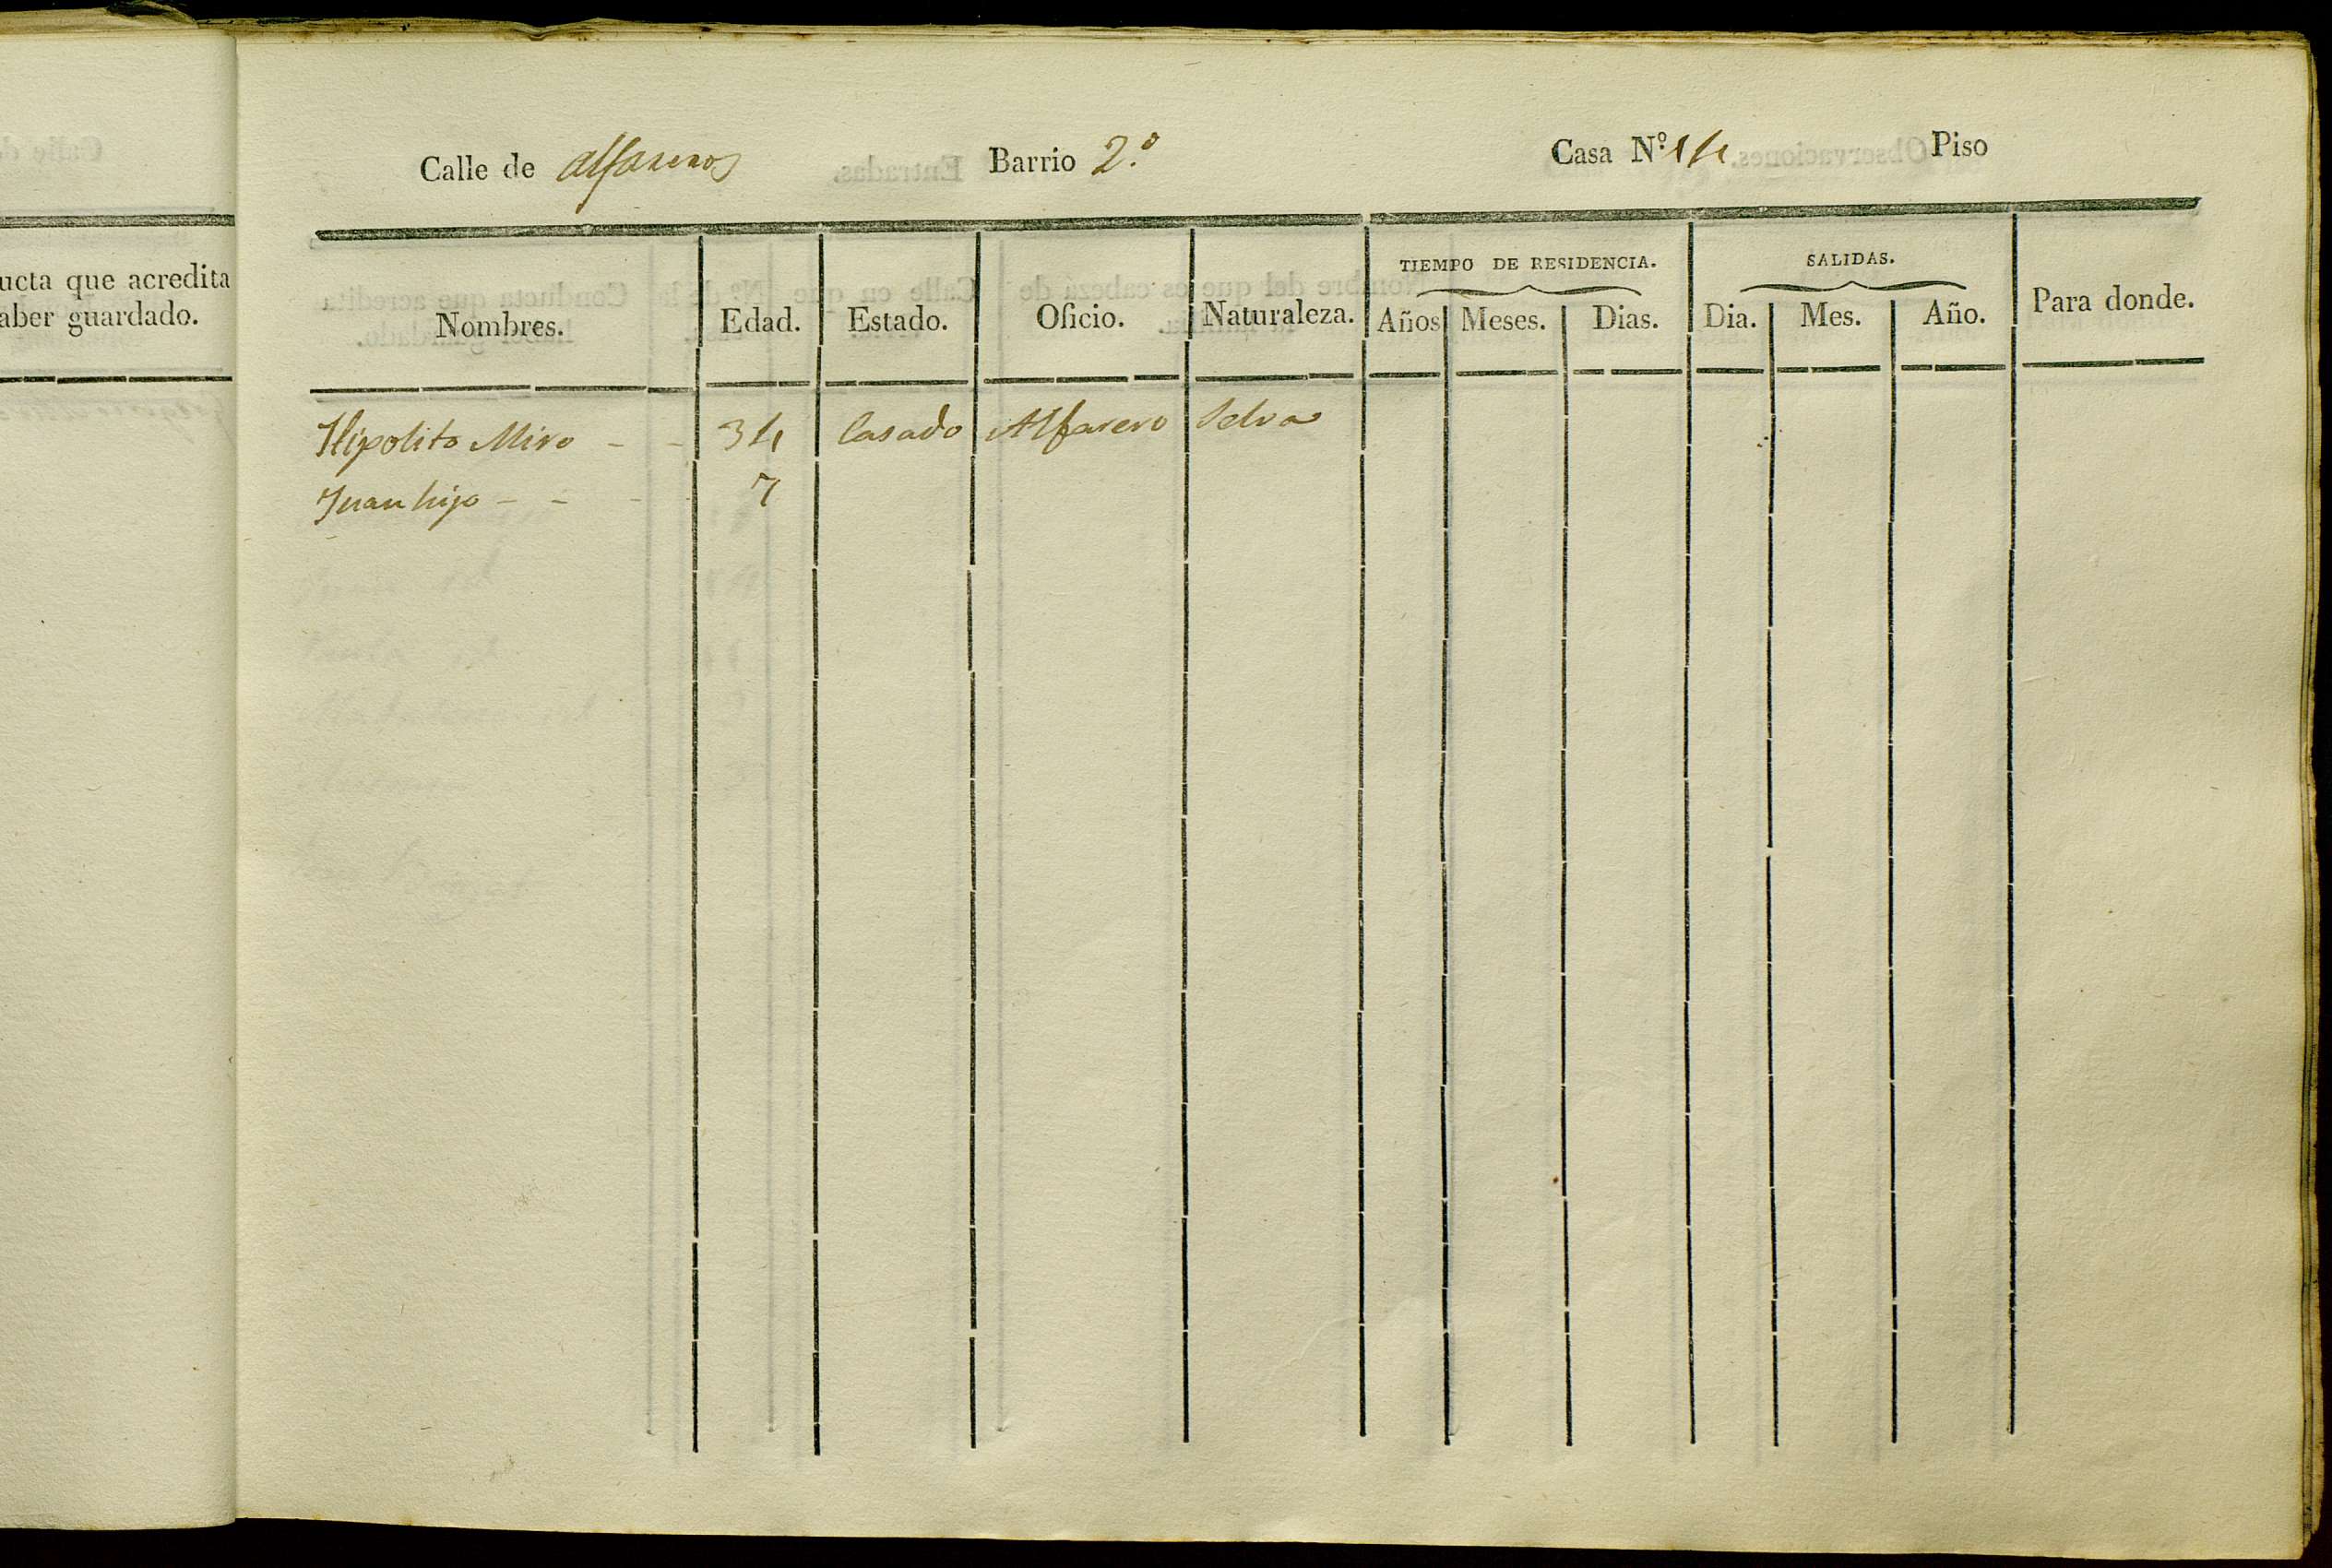 ucta que acredita
aber guardado.
Calle de alfareros Barrio 2.º Casa N.º 14 Piso
Nombres. Edad. Estado. Oficio. Naturaleza. TIEMPO DE RESIDENCIA. Años Meses. Dias. SALIDAS. Dia. Mes. Año. Para donde.
Hipolito Miro - - 34 Casado Alfarero Selva
Juan hijo - - - 7